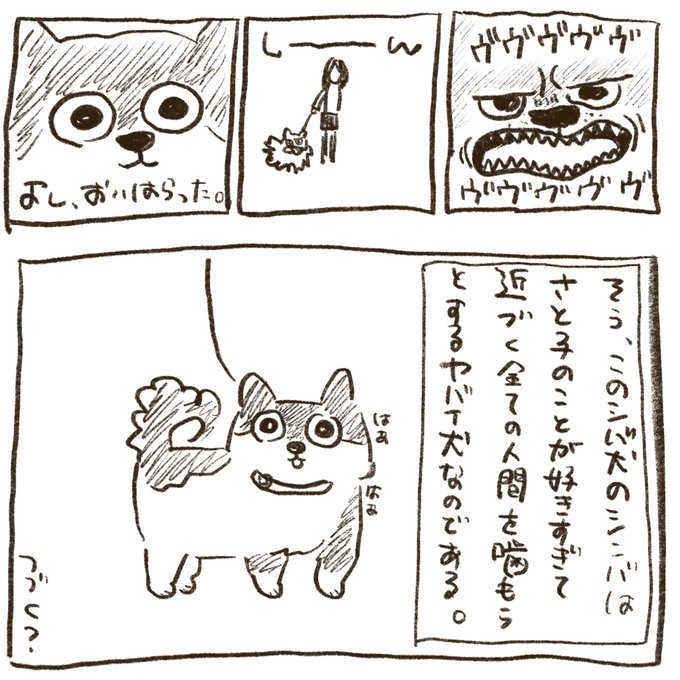 ヴヴヴヴヴ
ヴヴヴヴヴ
しーーーん
よし、おいはらった。
そう、このシバ犬のシンバは
さと子のことが好きすぎて
近づく全ての人間を噛もう
とするヤバイ犬なのである。
はぁ
はぁ
つづく?